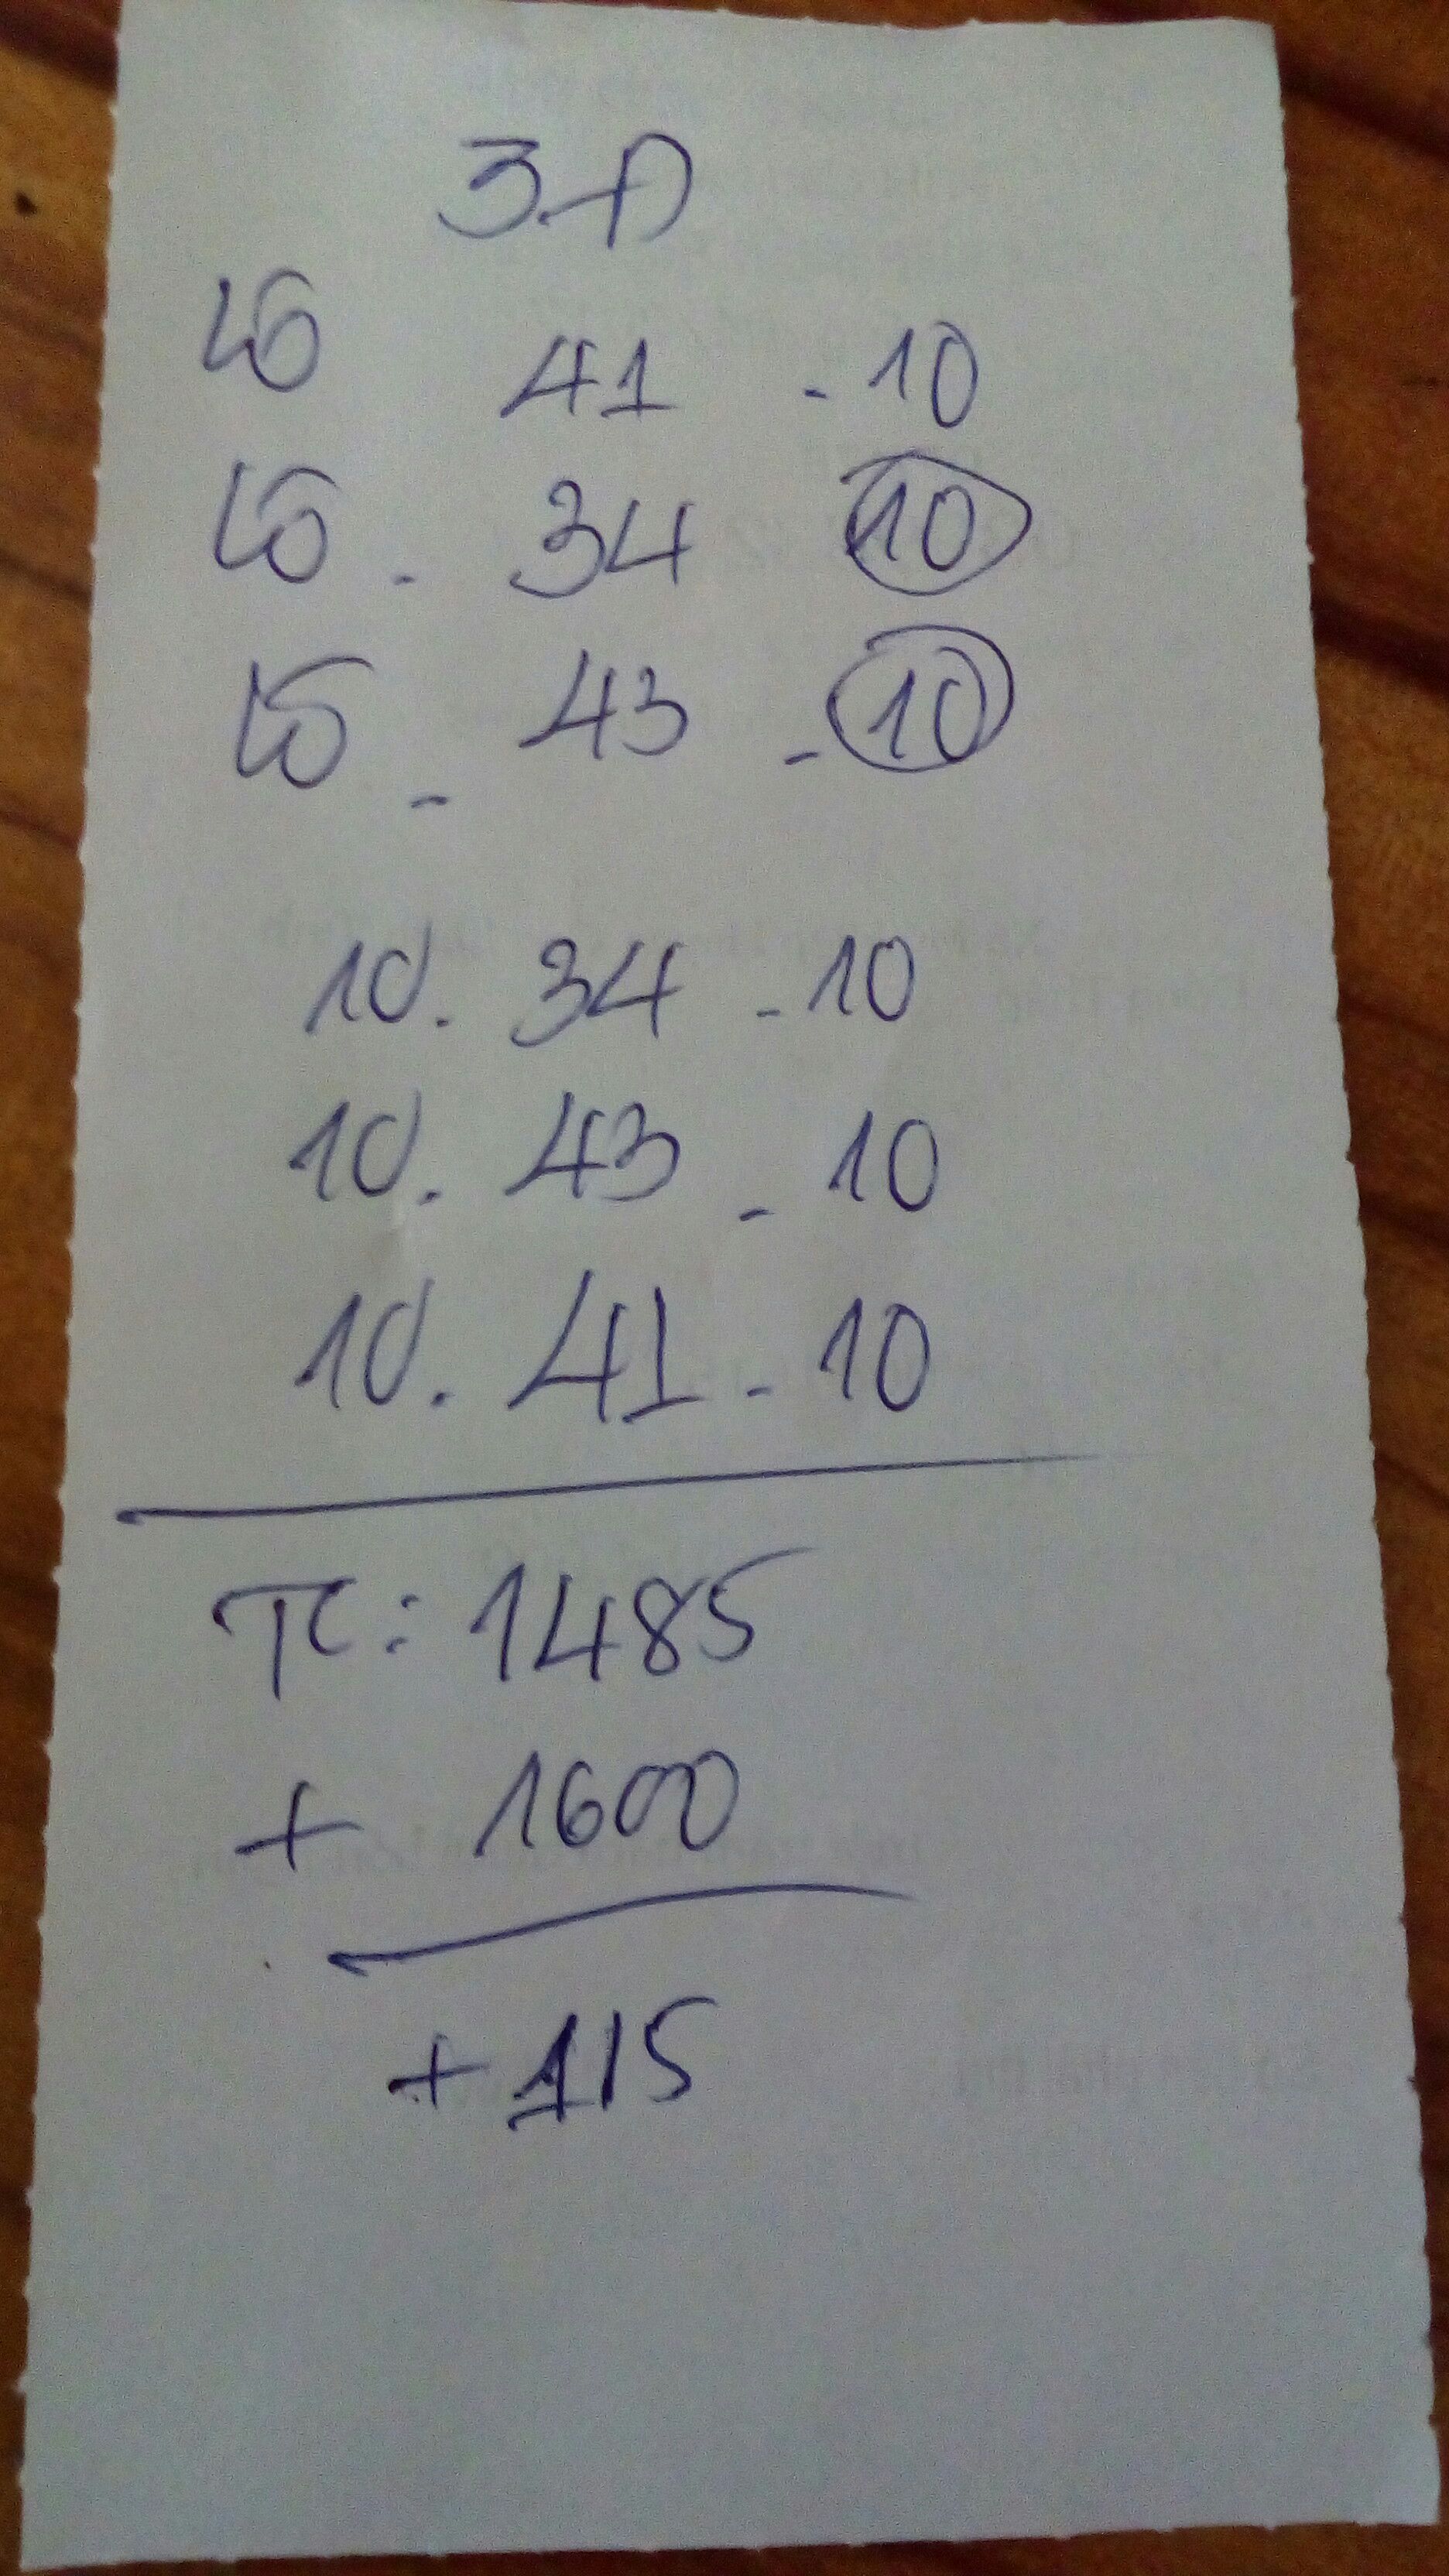 3-Đ
lô 41 - 10
lô - 34 10
lô - 43 - 10
10. 34 - 10
10. 43 - 10
10. 41 - 10
TC: 1485
+ 1600
+ 115